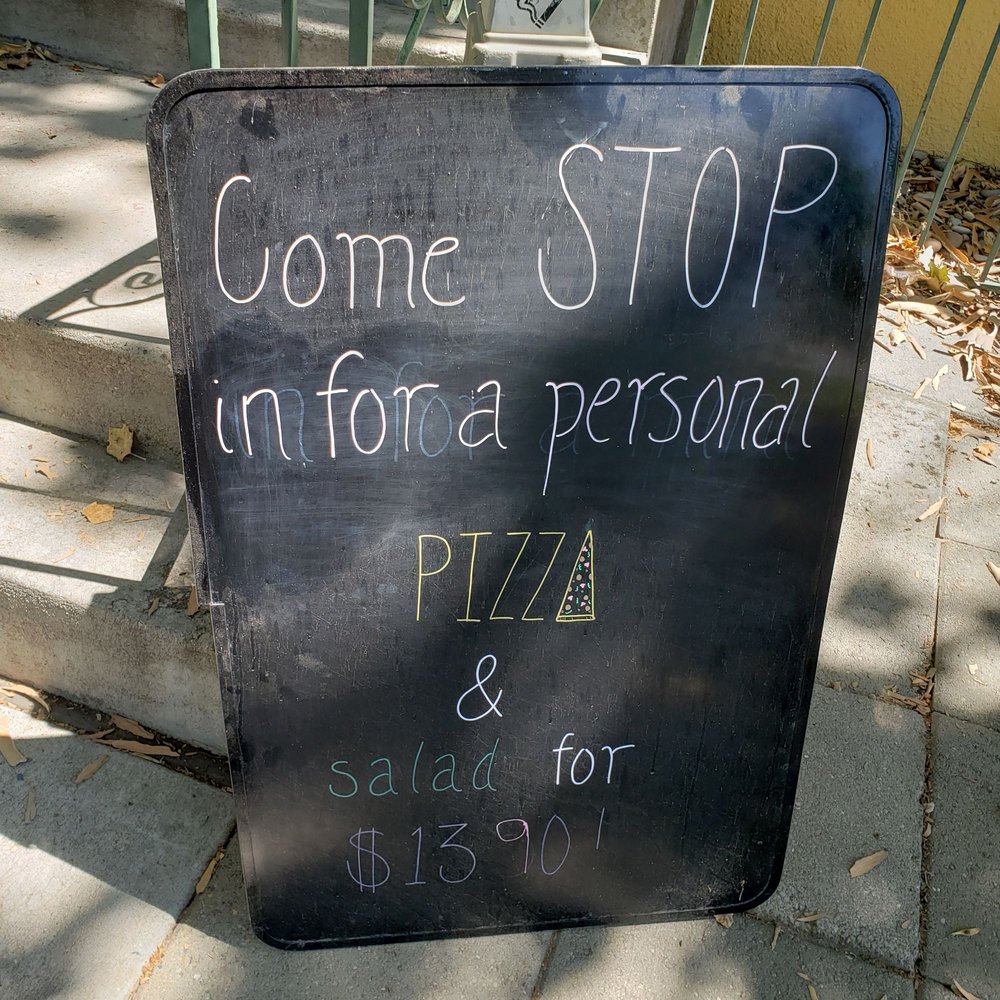 Come STOP
in for a personal
PIZZA
&
salad for
$13.90!